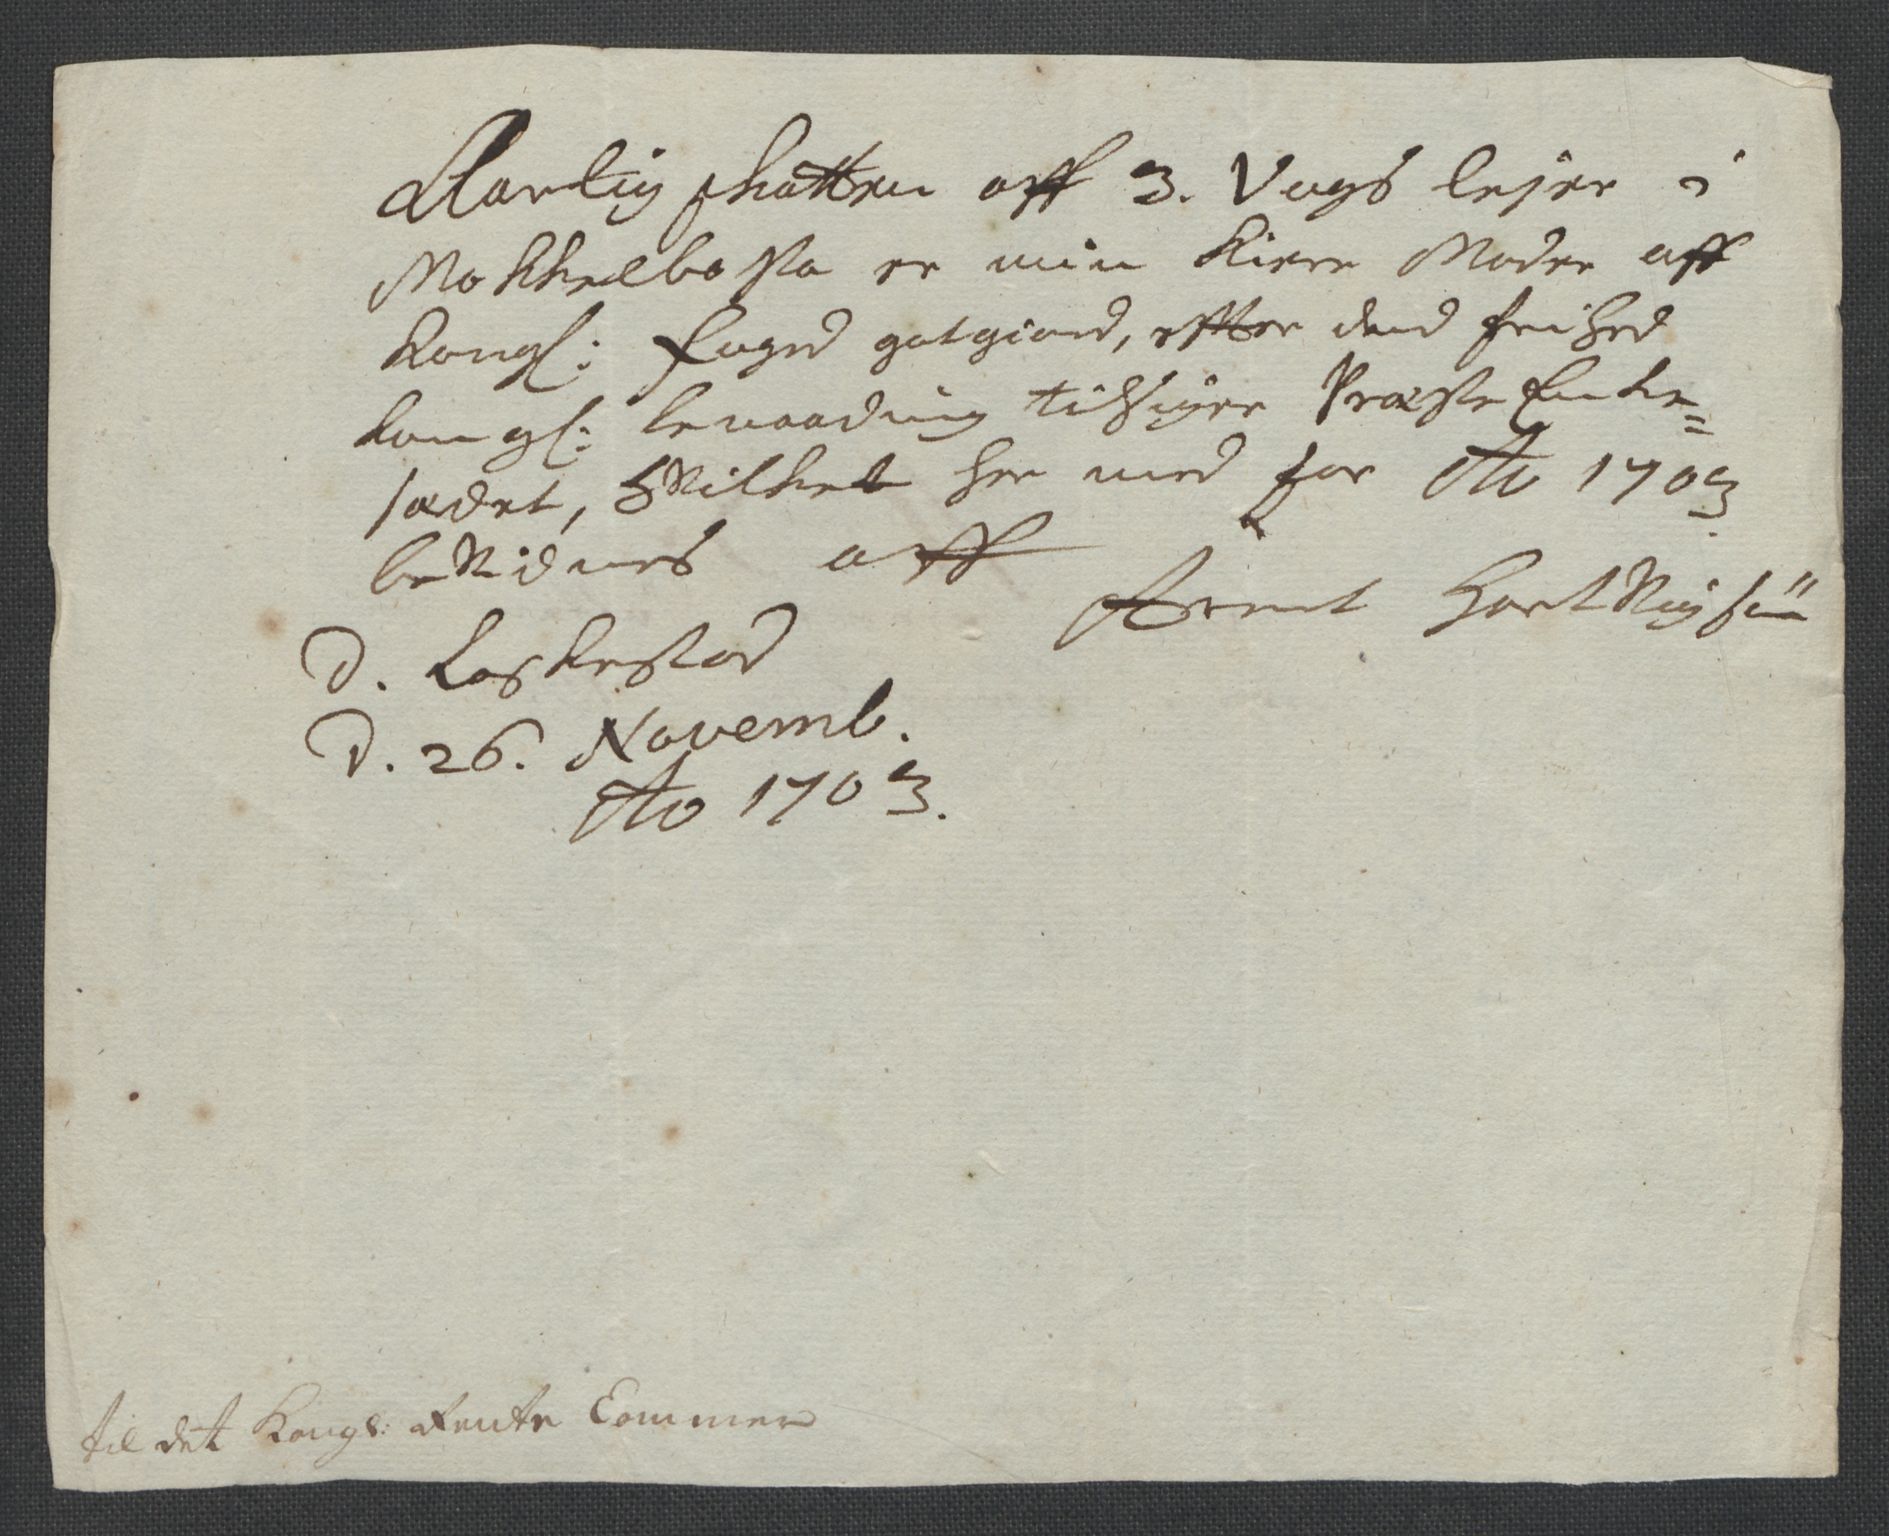 Aarlig skatten aff 3. Vogs lejer i
Mokkelbosta er min kiere Moder aff
kongl: Foged gotgiord, effter dend frihed
kongl: benaading tilsiger Præste Enke=
sædet, hvilket her med for Ao 1703
bekidnes aff
Arent Hartvigsün
D. Laskestad
D. 26. Novemb.
Ao 1703.
til det Kongl: Rente Cammer